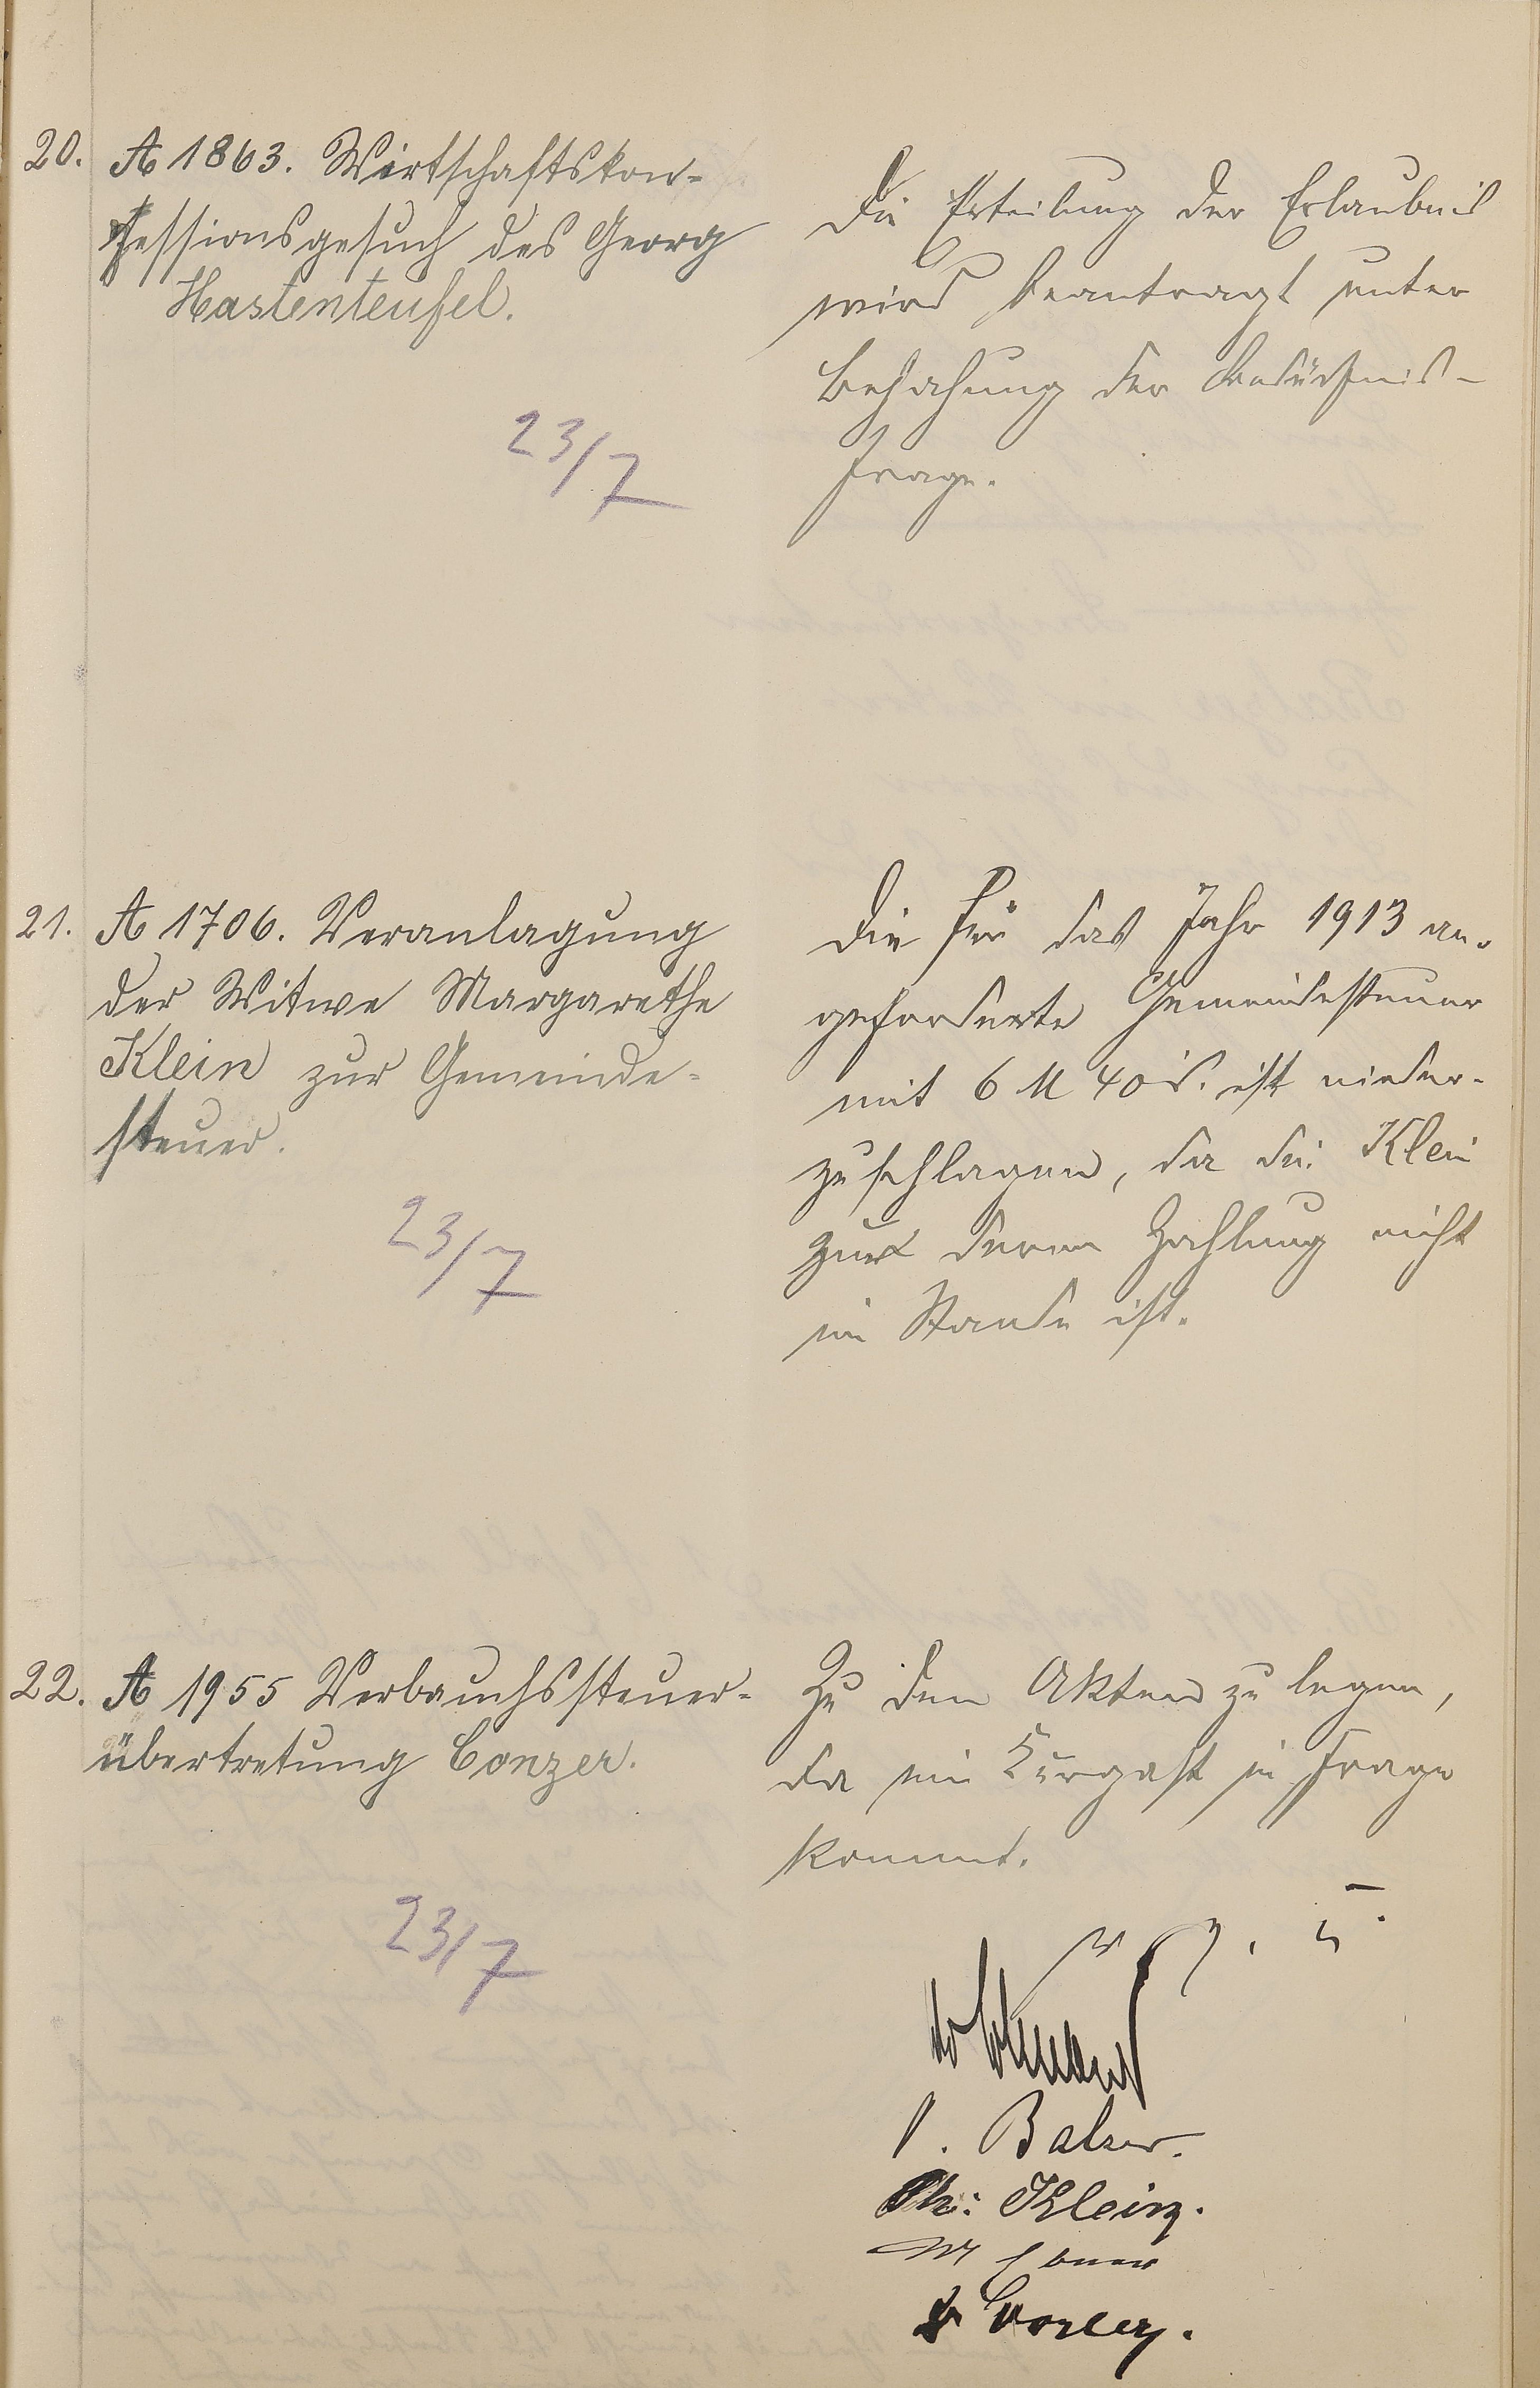 20. A 1863. Wirtschaftskon-
zessionsgesuch des Georg
Hastenteufel.
23/7
Die Erteilung der Erlaubnis
wird beantragt unter
Bejahung der Bedürfnis-
frage.
21. A 1706. Veranlagung
der Witwe Margarethe
Klein zur Gemeinde-
steuer.
23/7
Die für das Jahr 1913 an-
geforderte Gemeindesteuer
mit 6 M 40 . ist nieder-
zuschlagen, da die Klein
zur deren Zahlung nicht
im Stande ist.
22. A 1955 Verbauchssteuer-
übertretung Conzer.
23/7
Zu den Akten zu legen,
da ein Kurgast in Frage
kommt.
v. g. u.
P. Balzer.
Klein.
M Ebner